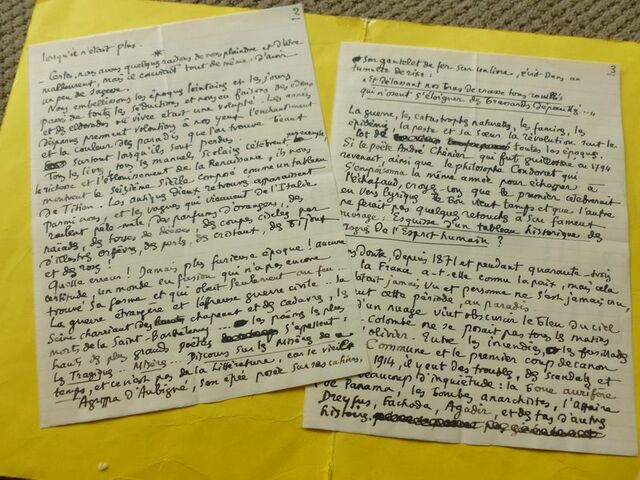 2
lorsqu'il n'était plus.
*
- Certes, nous avons quelques raisons de nous plaindre et d'être
malheureux, mais il convient tout de même d'avoir
un peu de sagesse.
Nous embellissons les époques lointaines et les jours
passés de toutes les séductions et nous en faisons des édens
et des eldorados où vivre était une volupté. Les années
disparues prennent volontiers à nos yeux l'enchantement
et la couleur des paradis que l'on trouve beaux
surtout lorsqu'ils sont perdus.
Tous les livres, tous les manuels scolaires célèbrent, par exemple,
la richesse et l'éblouissement de la Renaissance, ils nous
montrent le seizième siècle composé comme un tableau
de Titien. Les antiques dieux retrouvés apparaissent
parmi nous, et les vagues qui viennent de l'Italie
roulent pêle-mêle des parfums d'orangers, des
naïades, des torses de déesses, des coupes ciselées par
d'illustres orfèvres, des perles, des cristaux, des bijoux
et des roses!
Quelle erreur! Jamais plus furieuse époque! aucune
certitude, un monde en fusion qui n'a pas encore
trouvé sa forme et qui obéit seulement au feu...
La guerre étrangère et l'affreuse guerre civile... la
Seine charriant des chapeaux et des cadavres, les
morts de la Saint-Barthélemy... les poèmes les plus
hauts des plus grands poètes s'appellent:
Les Tragiques... Misères... Discours sur les Misères de ce
temps, et ce n'est pas de la littérature, car le vieil
Agrippa d'Aubigné, son épée posée sur ses cahiers,
3
son gantelet de fer sur un livre, écrit dans un
tumulte de rixe:
"et délassant nos bras de crasse tous rouillés
qui n'osent s'éloigner des brassards dépouillés"...
La guerre, les catastrophes naturelles, les famines, les
épidémies, la peste et sa sœur la révolution sont le
lot de toutes les époques.
Si le poète André Chénier qui fut guillotiné en 1794
revenait, ainsi que le philosophe Condorcet qui
s'empoisonna la même année pour échapper à
l'échafaud, croyez-vous que le premier célébrerait
en vers lyriques le bon vieux temps et que l'autre
ne ferait pas quelques retouches à son fameux
ouvrage: Esquisse d'un tableau historique des
progrès de l'Esprit humain?
Doute, depuis 1871 et pendant quarante-trois
la France a-t-elle connu la paix, mais cela
était jamais vu et personne ne s'est jamais cru,
cette période, au paradis.
d'un nuage vint obscurcir le bleu du ciel
colombe ne se posait pas tous les matins
olivier. Entre les incendies, les fusillades
Commune et le premier coup de canon
1914, il y eut des troubles, des scandales et
beaucoup d'inquiétude: la boue aurifère
de Panama, les bombes anarchistes, l'affaire
Dreyfus, Fachoda, Agadir, et des tas d'autres
histoires.